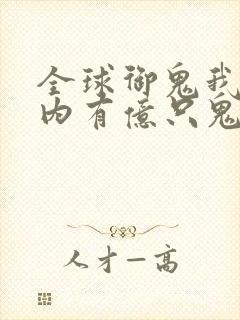 全球御鬼我
内有億只鬼
人才一高